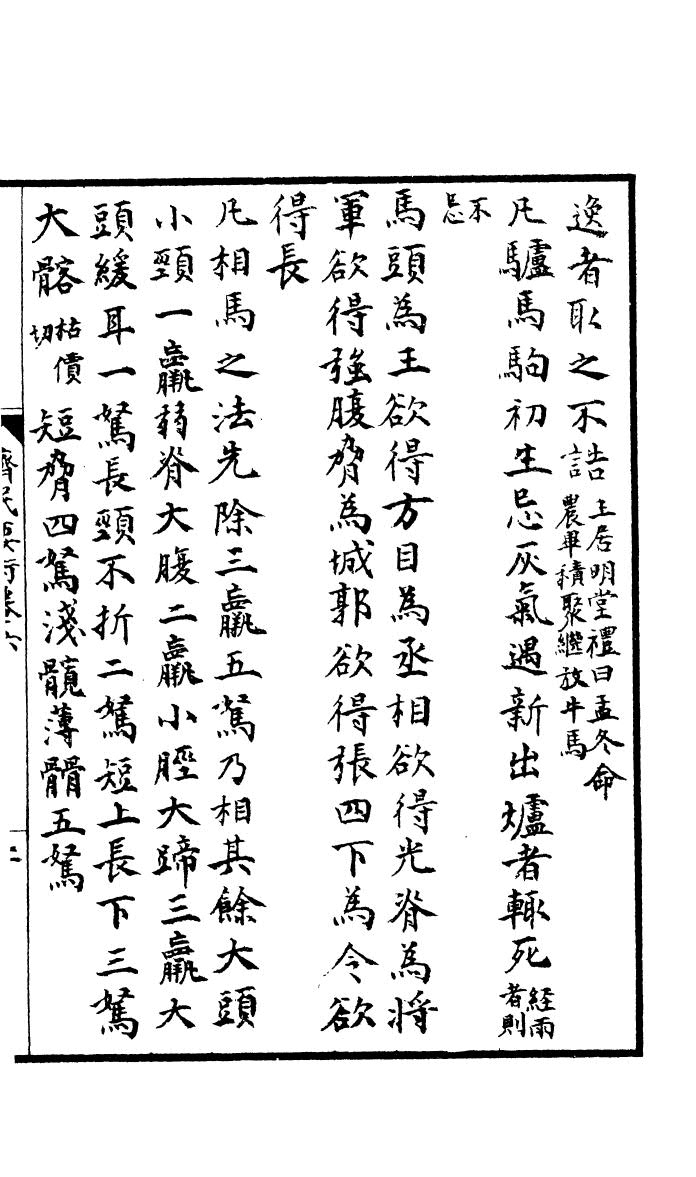 逸者取之不詰王居明堂禮曰孟冬命農畢積聚繼放牛馬
凡驢馬駒初生忌灰氣遇新出爐者輙死経雨者則
不忌
馬頭為王欲得方目為丞相欲得光脊為将
軍欲得強腹脅為城郭欲得張四下為令欲
得長
凡相馬之法先除三羸五駑乃相其餘大頭
小頸一羸弱脊大腹二羸小脛大蹄三羸大
頭緩耳一駑長頸不折二駑短上長下三駑
大髂枯價切短脅四駑淺髖薄髀五駑
齊民要術卷六
二